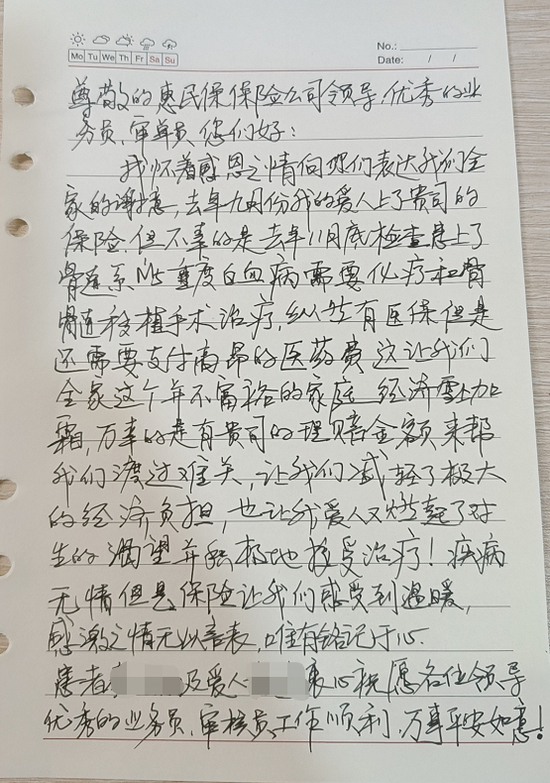 No.:
Mo Tu We Th Fr Sa Su
Date: / /
尊敬的惠民保保险公司领导,优秀的业
务员,审单员,您们好:
我怀着感恩之情向您们表达我们全
家的谢意,去年九月份我的爱人上了贵司的
保险但不幸的是去年11月底检查患上了
骨髓系M5重度白血病需要化疗和骨
髓移植手术治疗,纵然有医保但是
还需要支付高昂的医药费这让我们
全家这个并不富裕的家庭 经济雪上加
霜,万幸的是有贵司的理赔金额来帮
我们渡过难关,让我们减轻了极大
的经济负担,也让我爱人又燃起了对
生的渴望并积极地接受治疗!疾病
无情但是保险让我们感受到温暖,
感激之情无以言表,唯有铭记于心.
患者 及爱人 衷心祝愿各位领导
优秀的业务员,审核员工作顺利,万事平安如意!